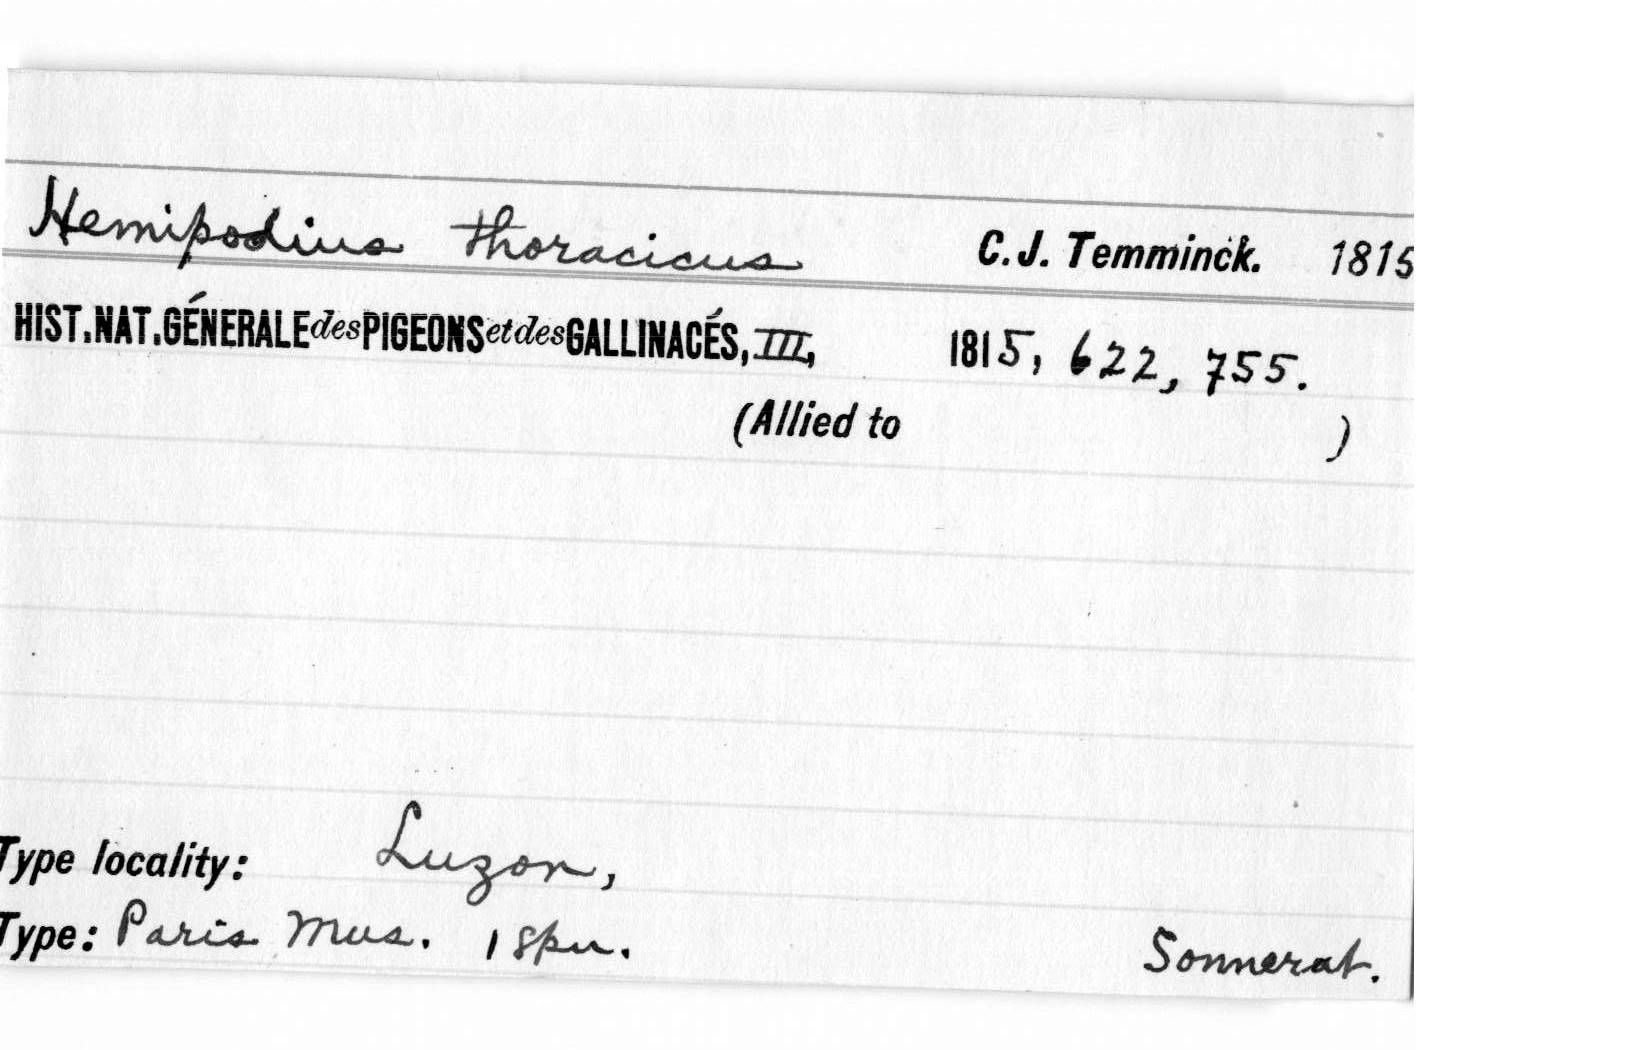 Hemipodius thoracicus C.J. Temminck. 1815
HIST.NAT.GÉNERALE des PIGEONS et des GALLINACÉS, III, 1815, 622, 755.
(Allied to )
Type locality: Luzon,
Type: Paris Mus. 1 spn. Sonnerat.